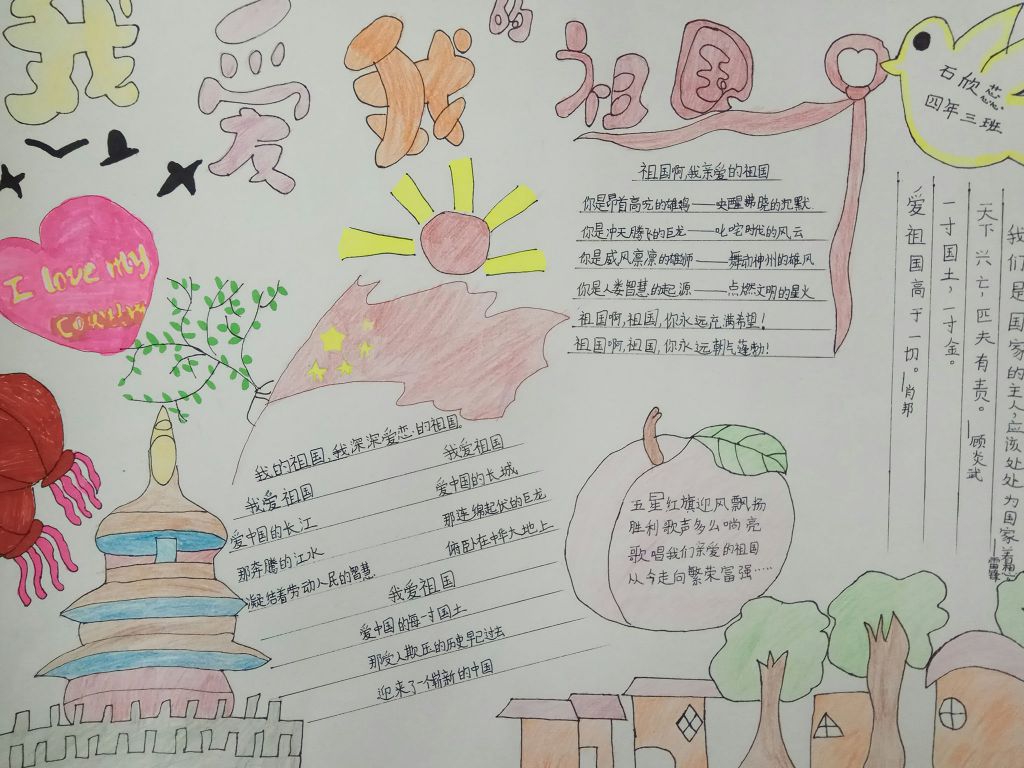 我爱我的祖国
石欣蕊
四年三班
I love my
country
祖国啊,我亲爱的祖国
你是昂首高吭的雄鸡——唤醒拂晓的沉默.
你是冲天腾飞的巨龙——叱咤时代的风云
你是威风凛凛的雄狮——舞动神州的雄风
你是人类智慧的起源——点燃文明的星火
祖国啊,祖国,你永远充满希望!
祖国啊,祖国,你永远朝气蓬勃!
我们是国家的主人,应该处处为国家着想
——雷锋
天下兴亡,匹夫有责。——顾炎武
一寸国土,一寸金。
爱祖国高于一切。——肖邦
我的祖国,我深深爱恋的祖国.
我爱祖国
爱中国的长江
那奔腾的江水
凝结着劳动人民的智慧
我爱祖国
爱中国的长城
那连绵起伏的巨龙
俯卧在中华大地上
我爱祖国
爱中国的每一寸国土
那受人欺压的历史早已过去
迎来了一个崭新的中国
五星红旗迎风飘扬
胜利歌声多么响亮
歌唱我们亲爱的祖国
从今走向繁荣富强……